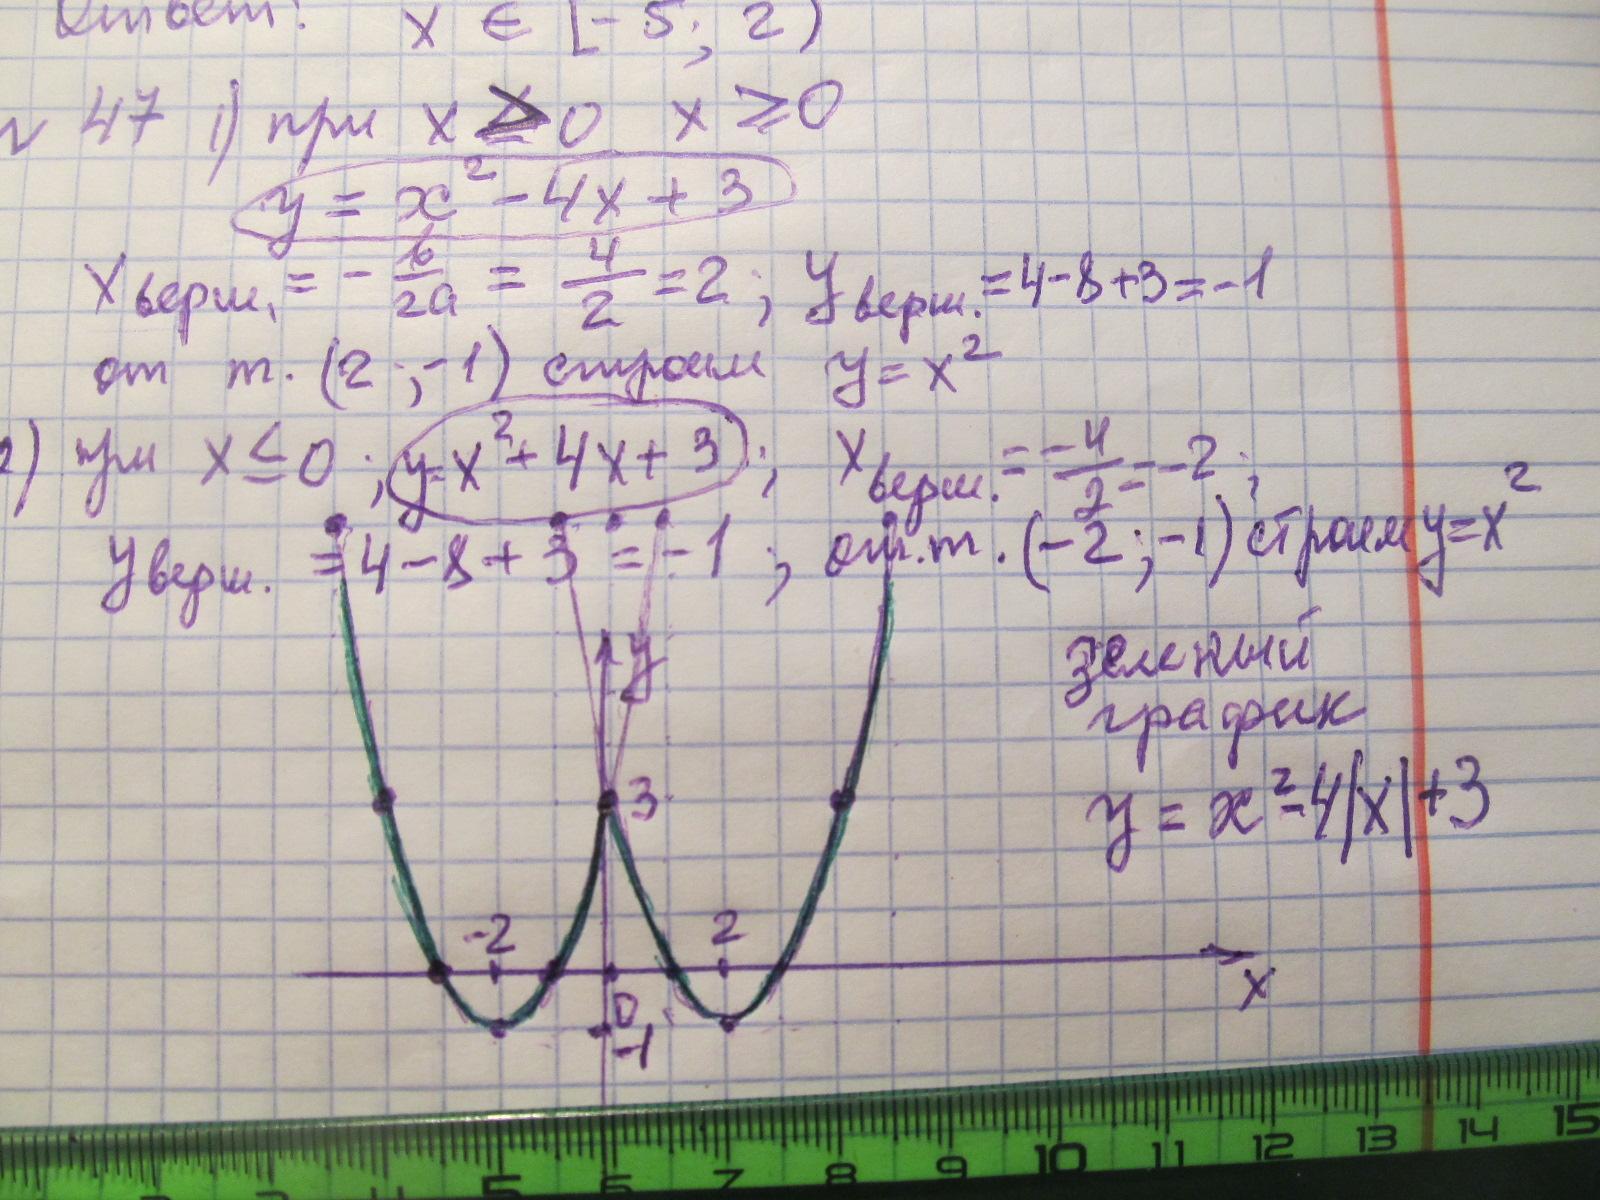 Ответ: x ∈ [-5; 2)
№ 47 1) при x ≥ 0 x ≥ 0
y = x² - 4x + 3
Xверш. = - b/2a = 4/2 = 2; Yверш. = 4-8+3 = -1
от т. (2; -1) строим y = x²
2) при x ≤ 0; y = x² + 4x + 3; Xверш. = -4/2 = -2;
Yверш. = 4 - 8 + 3 = -1; от т. (-2; -1) строим y = x²
y
зеленый
график
3
y = x² - 4|x| + 3
-2 2
0 x
-1
5 6 7 8 9 10 11 12 13 14 15